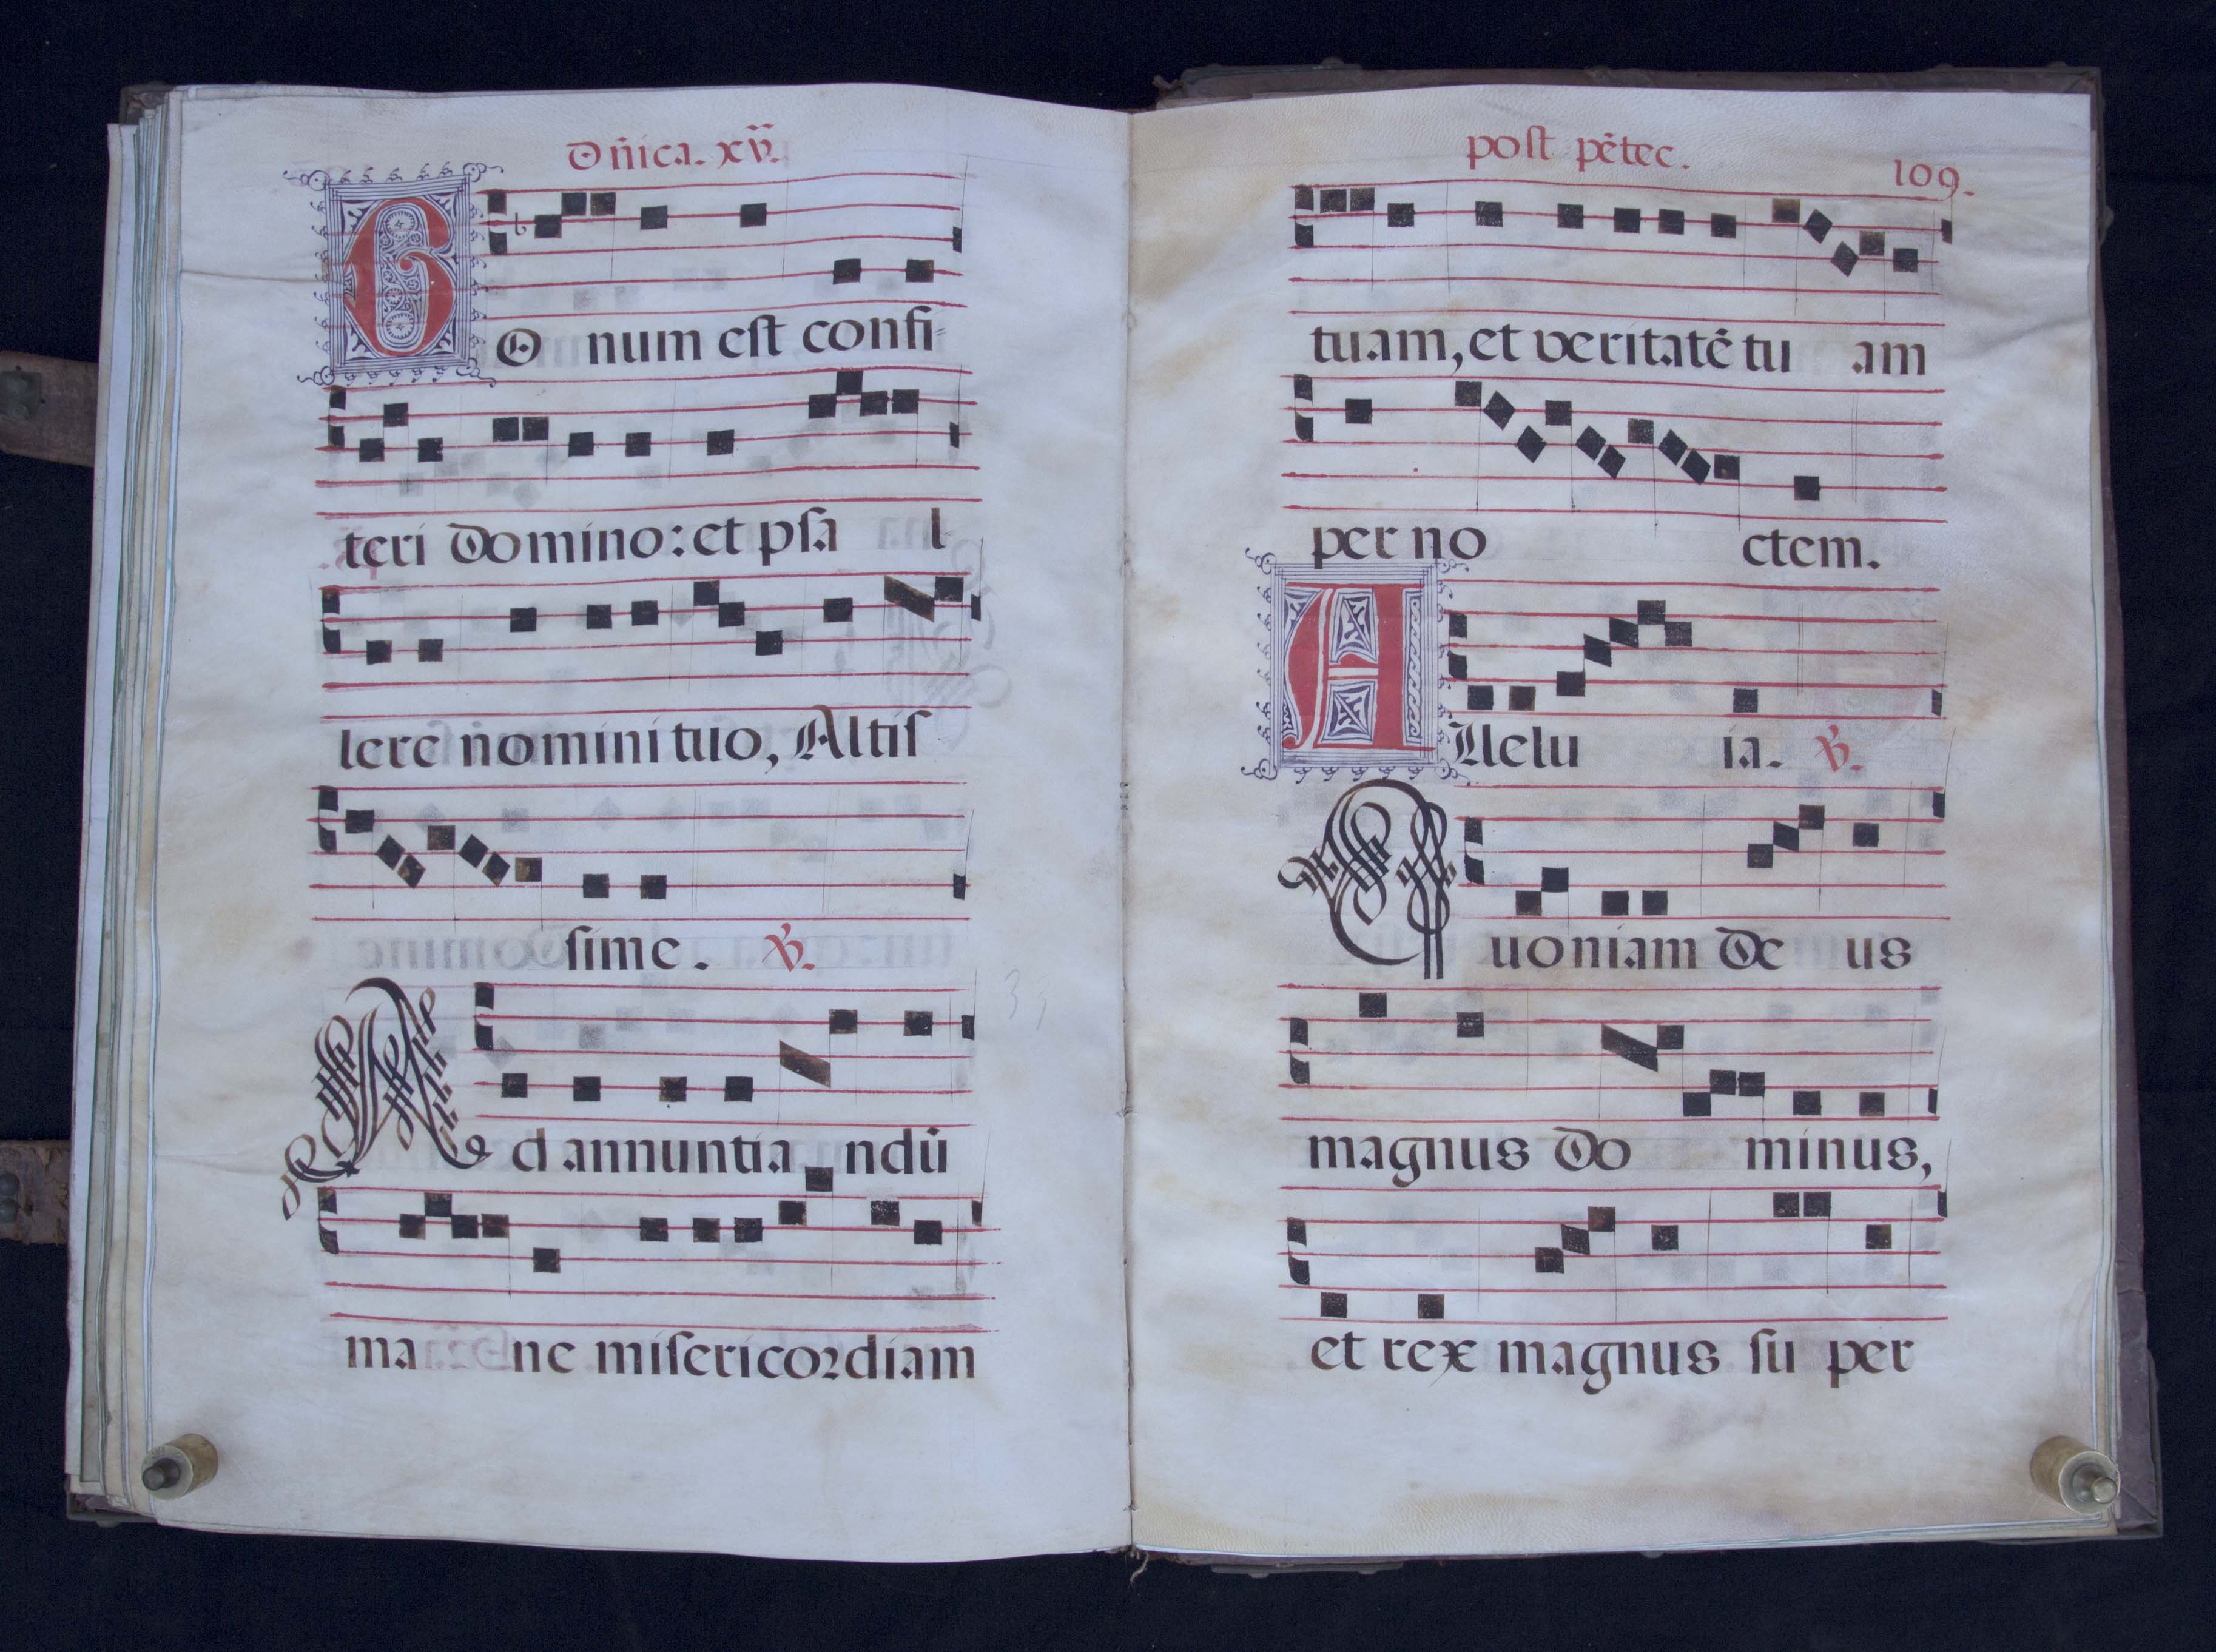 Dñica. xv.
BO num est confi-
teri Domino: et psa l
lere nomini tuo, Altis
sime. ℣.
Ad annuntia ndū
ma ne misericordiam
post pētec. 109.
tuam, et veritatē tu am
per no ctem.
Allelu ia. ℣.
Quoniam De us
magnus Do minus,
et rex magnus su per